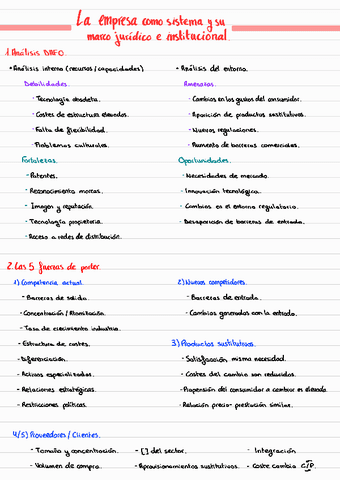 La empresa como sistema y su
marco jurídico e institucional.
1. Análisis DAFO.
• Análisis interno (recursos/capacidades)
Debilidades.
- Tecnología obsoleta.
- Costes de estructura elevados.
- Falta de flexibilidad.
- Problemas culturales.
Fortalezas.
- Patentes.
- Reconocimiento marcas.
- Imagen y reputación.
- Tecnología propietaria.
- Acceso a redes de distribución.
• Análisis del entorno.
Amenazas.
- Cambios en los gustos del consumidor.
- Aparición de productos sustitutivos.
- Nuevas regulaciones.
- Aumento de barreras comerciales.
Oportunidades.
- Necesidades de mercado.
- Innovación tecnológica.
- Cambios en el entorno regulatorio.
- Desaparición de barreras de entrada.
2. Las 5 fuerzas de porter.
1) Competencia actual.
- Barreras de salida.
- Concentración / Atomización.
- Tasa de crecimiento industria.
- Estructura de costes.
- Diferenciación.
- Activos especializados.
- Relaciones estratégicas.
- Restricciones políticas.
2) Nuevos competidores.
- Barreras de entrada.
- Cambios generados con la entrada.
3) Productos sustitutivos.
- Satisfacción misma necesidad.
- Costes del cambio son reducidos.
- Propensión del consumidor a cambiar es elevada.
- Relación precio-prestación similar.
4/5) Proveedores / Clientes.
- Tamaño y concentración.
- Volumen de compra.
- [] del sector.
- Aprovisionamientos sustitutivos.
- Integración
- Coste cambio C/P.